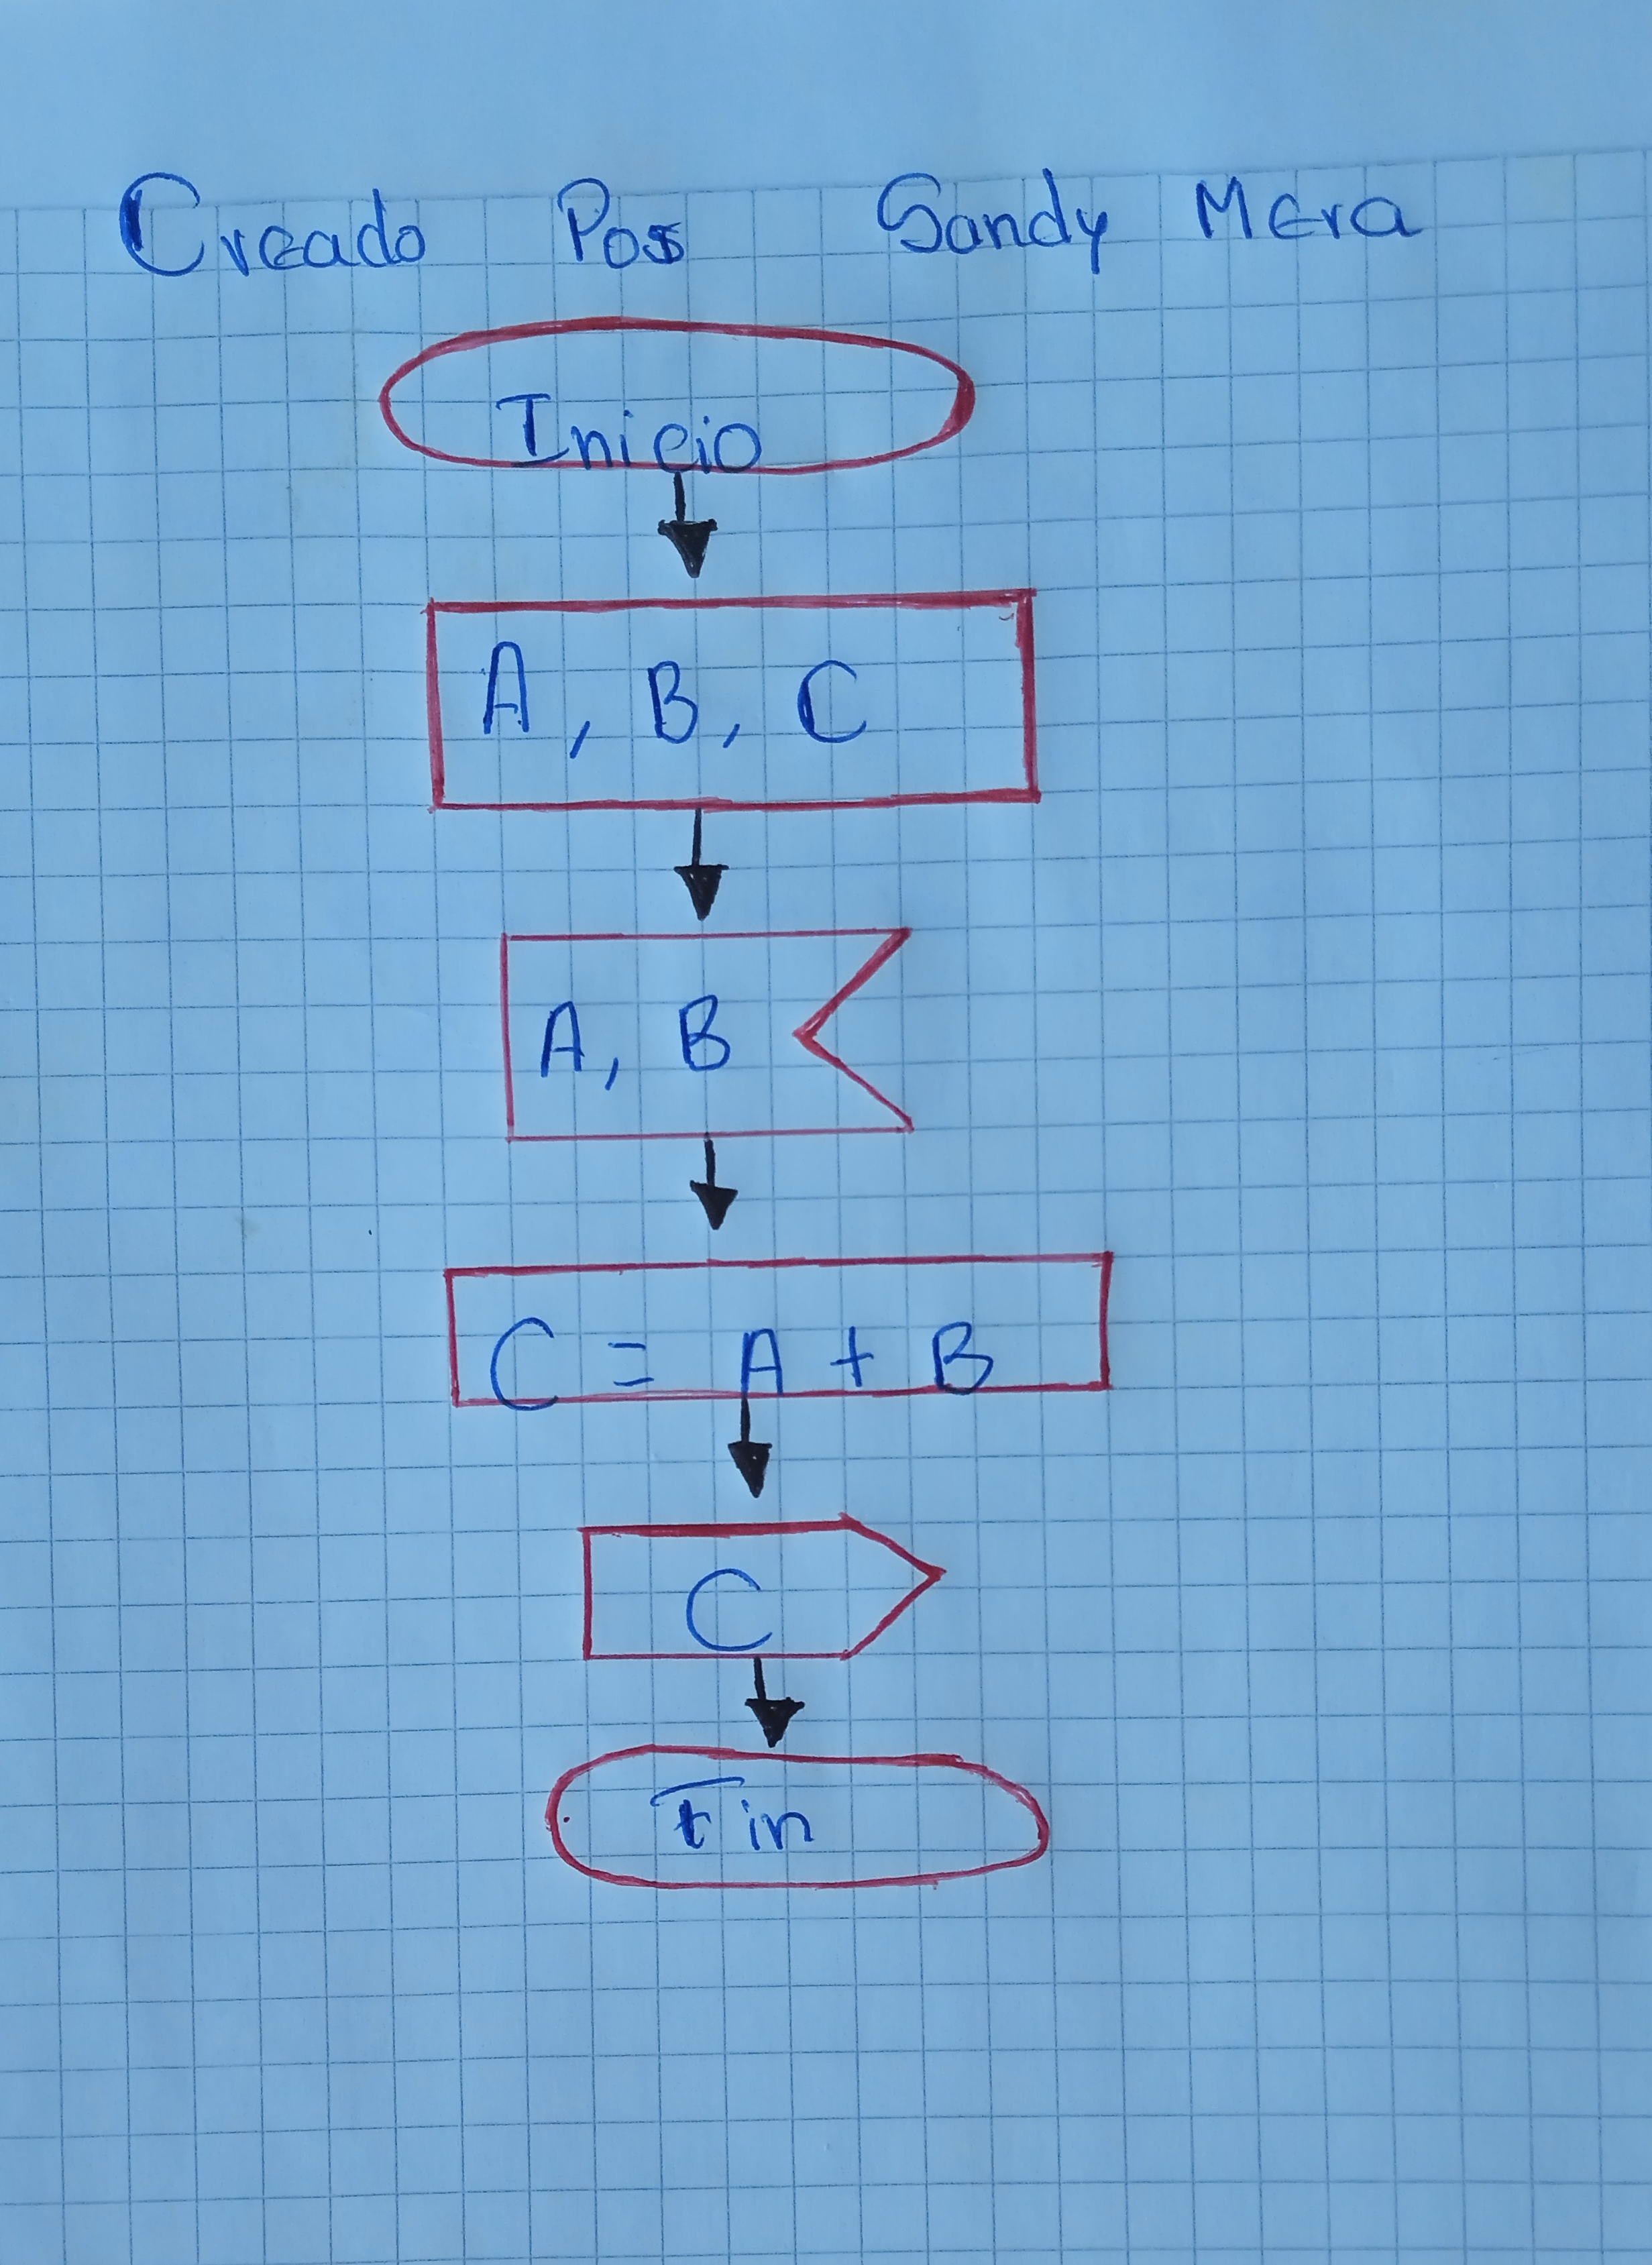 Creado Pos Sandy Mera
Inicio
A, B, C
A, B
C = A + B
C
Fin